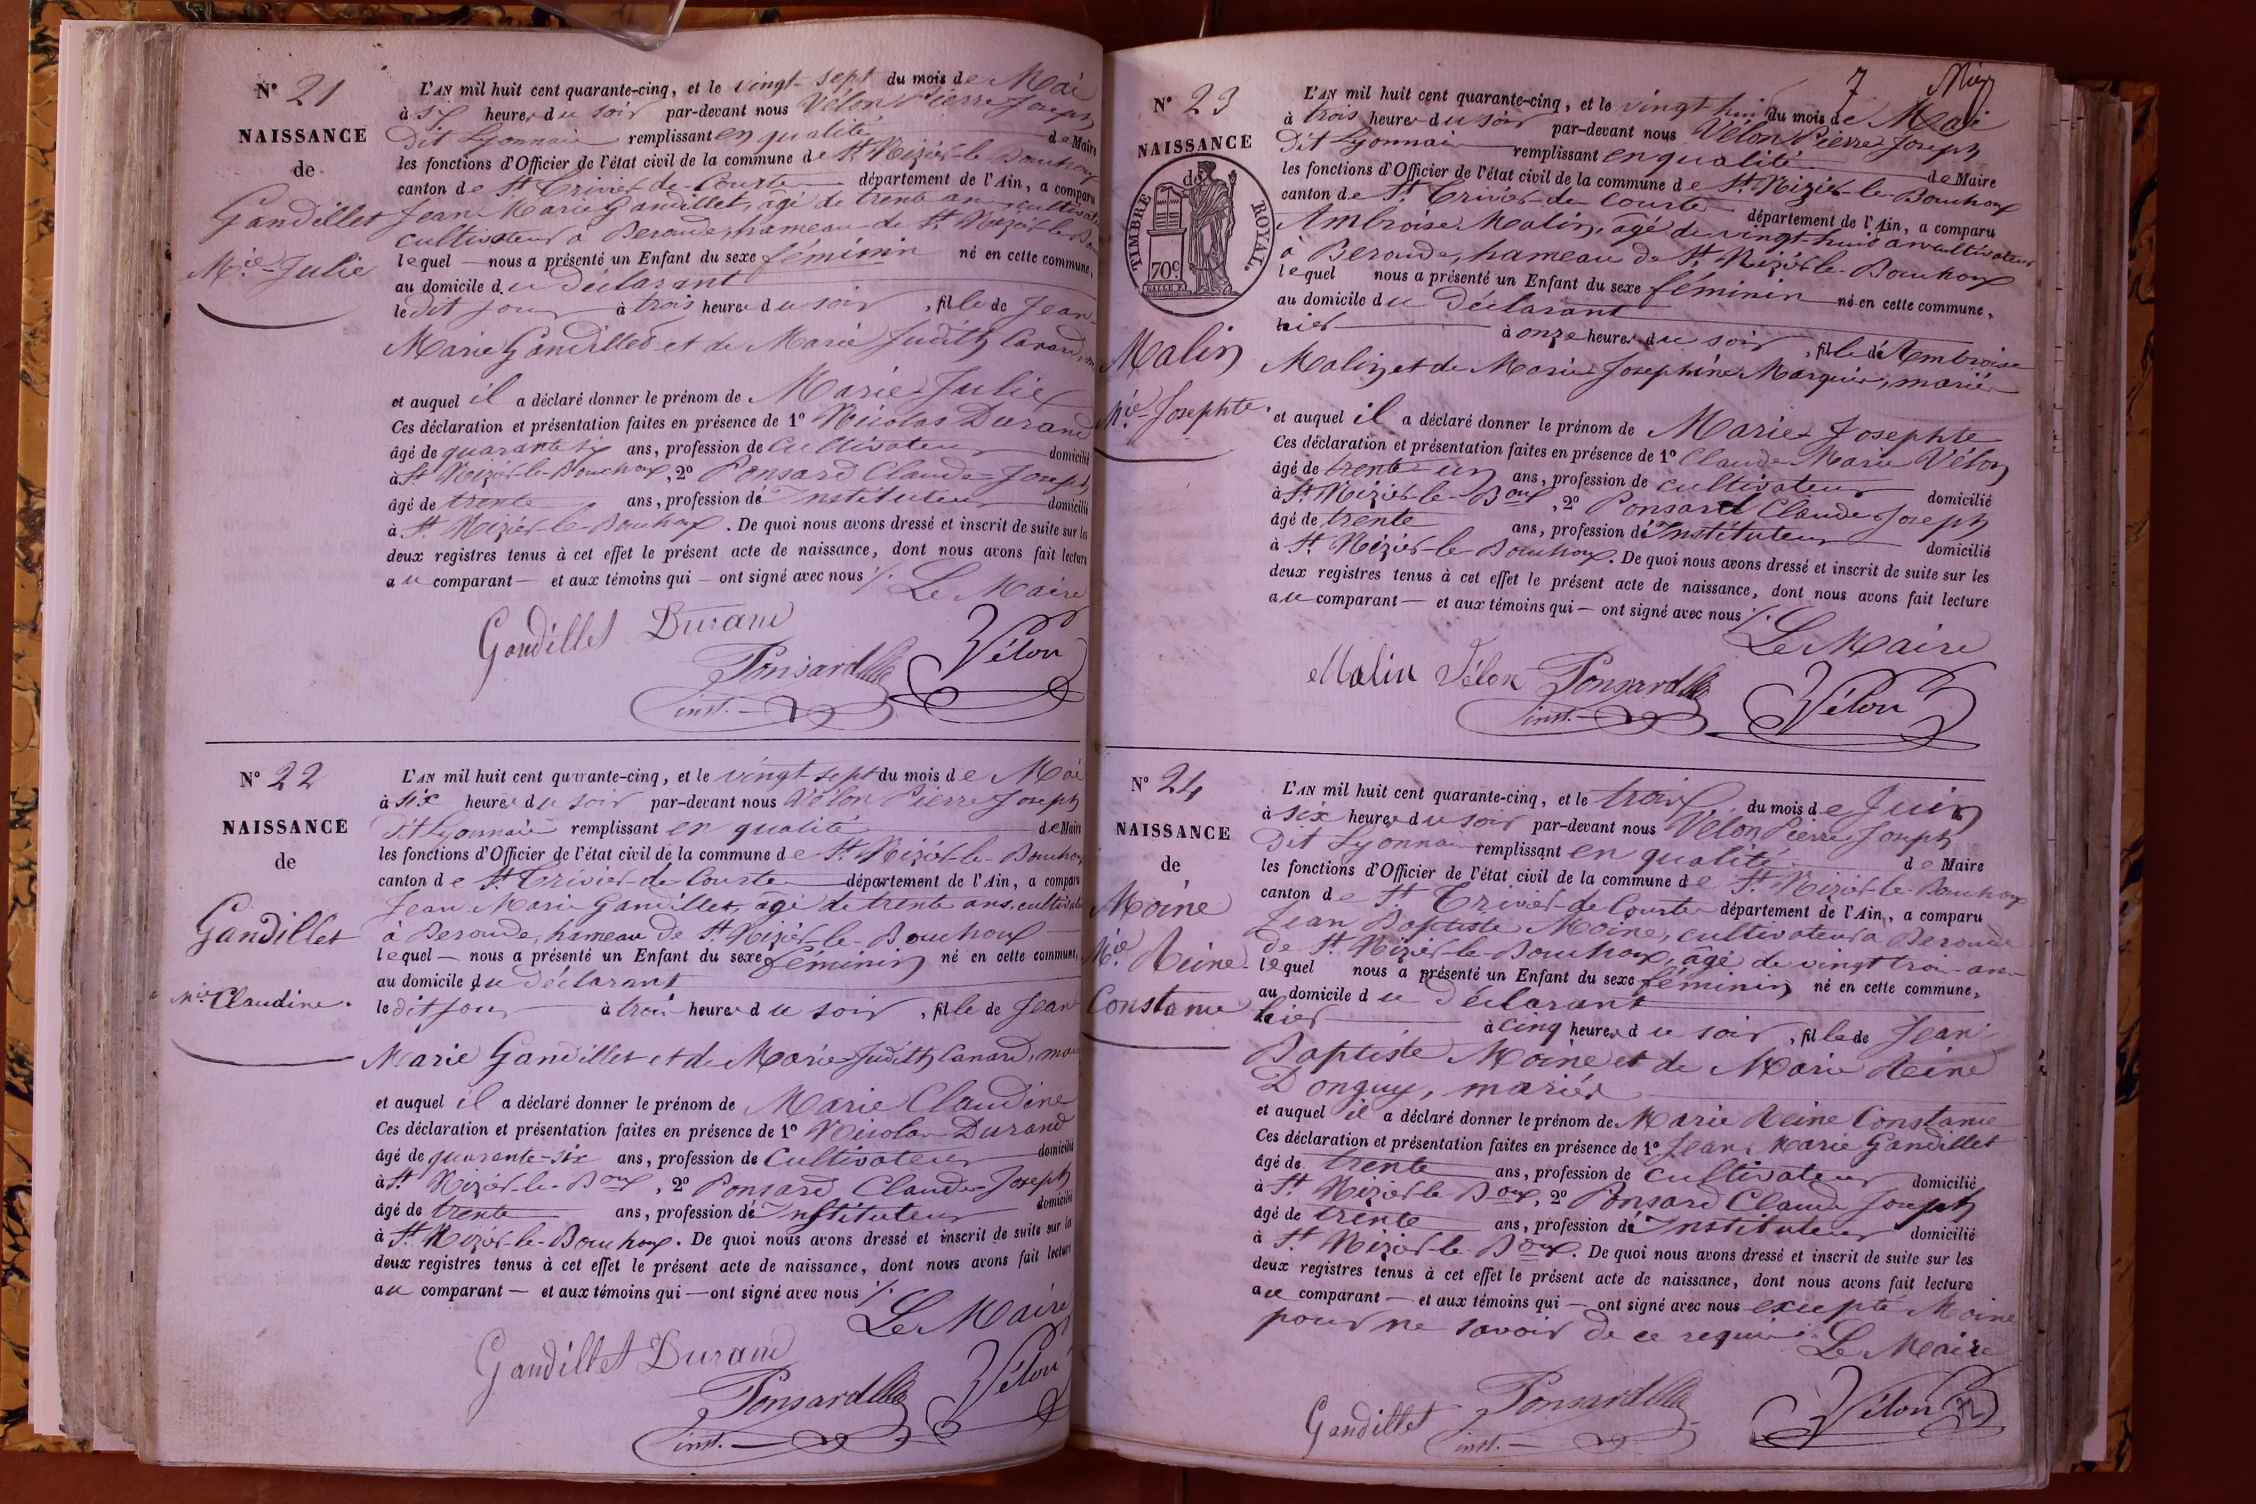 N° 21
NAISSANCE
de
Gandillet
M.ie Julie
L'AN mil huit cent quarante-cinq, et le vingt-sept du mois de Mai
à six heures du soir par-devant nous Vélon Pierre Joseph
dit Lyonnais remplissant en qualité de Maire
les fonctions d'Officier de l'état civil de la commune de St Nizier-le-Bouhoux
canton de St Trivier-de-Courtes département de l'Ain, a comparu
Jean Marie Gandillet, agé de trente ans, cultivateur
cultivateur à Beroude, hameau de St Nizier-le-B
lequel — nous a présenté un Enfant du sexe féminin né en cette commune,
au domicile du déclarant
le dit jour à trois heures du soir, fille de Jean-
Marie Gandillet et de Marie Judith Canard,
et auquel il a déclaré donner le prénom de Marie Julie
Ces déclaration et présentation faites en présence de 1° Nicolas Durand
âgé de quarante six ans, profession de cultivateur domicilié
à St Nizier-le-Bouchoux, 2° Ponsard Claude-Joseph
âgé de trente ans, profession de Instituteur domicilié
à St Nizier-le-Bouhoux. De quoi nous avons dressé et inscrit de suite sur les
deux registres tenus à cet effet le présent acte de naissance, dont nous avons fait lecture
au comparant — et aux témoins qui — ont signé avec nous ./.
Le Maire
Gandillet Durand
Ponsard Vélon
inst.
N° 22
NAISSANCE
de
Gandillet
M.ie Claudine.
L'AN mil huit cent quarante-cinq, et le vingt-sept du mois de Mai
à six heures du soir par-devant nous Vélon Pierre Joseph
dit Lyonnais remplissant en qualité de Maire
les fonctions d'Officier de l'état civil de la commune de St Nizier-le-Bouhoux
canton de St Trivier-de-Courtes département de l'Ain, a comparu
Jean Marie Gandillet, agé de trente ans, cultivateur
à Beroude, hameau de St Nizier-le-Bouchoux
lequel — nous a présenté un Enfant du sexe féminin né en cette commune,
au domicile du déclarant
le dit jour à trois heures du soir, fille de Jean
Marie Gandillet et de Marie Judith Canard, mariés
et auquel il a déclaré donner le prénom de Marie Claudine
Ces déclaration et présentation faites en présence de 1° Nicolas Durand
âgé de quarante-six ans, profession de Cultivateur domicilié
à St Nizier-le-Boux, 2° Ponsard Claude Joseph
âgé de trente ans, profession de Instituteur domicilié
à St Nizier-le-Bouhoux. De quoi nous avons dressé et inscrit de suite sur les
deux registres tenus à cet effet le présent acte de naissance, dont nous avons fait lecture
au comparant — et aux témoins qui — ont signé avec nous ./.
Le Maire
Gandillet Durand
Ponsard Vélon
inst.
7
N° 23
NAISSANCE
de
TIMBRE ROYAL.
70c
Malin
M.ie Josephte.
L'AN mil huit cent quarante-cinq, et le vingt huit du mois de Mai
à trois heures du soir par-devant nous Vélon Pierre Joseph
dit Lyonnais remplissant en qualité de Maire
les fonctions d'Officier de l'état civil de la commune de St Nizier-le-Bouhoux
canton de St Trivier-de-Courtes département de l'Ain, a comparu
Ambroise Malin, agé de vingt-huit ans cultivateur
à Beroude, hameau de St Nizier-le-Bouhoux
lequel nous a présenté un Enfant du sexe féminin né en cette commune,
au domicile du déclarant
hier à onze heures du soir, fille de Ambroise
Malin et de Marie Josephine Marguin, mariés
et auquel il a déclaré donner le prénom de Marie Josephte
Ces déclaration et présentation faites en présence de 1° Claude Marie Vélon
âgé de trente-un ans, profession de cultivateur domicilié
à St Nizier-le-Boux, 2° Ponsard Claude Joseph
âgé de trente ans, profession de Instituteur domicilié
à St Nizier-le Bouhoux. De quoi nous avons dressé et inscrit de suite sur les
deux registres tenus à cet effet le présent acte de naissance, dont nous avons fait lecture
au comparant — et aux témoins qui — ont signé avec nous ./.
Le Maire
Malin Vélon Ponsard Vélon
inst.
N° 24
NAISSANCE
de
Moine
M.ie Reine
Constance
L'AN mil huit cent quarante-cinq, et le trois du mois de Juin
à six heures du soir par-devant nous Vélon Pierre Joseph
dit Lyonnais remplissant en qualité de Maire
les fonctions d'Officier de l'état civil de la commune de St Nizier-le-Bouhoux
canton de St Trivier-de-Courtes département de l'Ain, a comparu
Jean Baptiste Moine, cultivateur à Beroude
de St Nizier-le-Bouhoux, agé de vingt trois ans
lequel nous a présenté un Enfant du sexe féminin né en cette commune,
au domicile du déclarant
hier à cinq heures du soir, fille de Jean
Baptiste Moine et de Marie Reine
Donguy, mariés
et auquel il a déclaré donner le prénom de Marie Reine Constance
Ces déclaration et présentation faites en présence de 1° Jean Marie Gandillet
âgé de trente ans, profession de cultivateur domicilié
à St Nizier-le Boux, 2° Ponsard Claude Joseph
âgé de trente ans, profession de Instituteur domicilié
à St Nizier-le-Boux. De quoi nous avons dressé et inscrit de suite sur les
deux registres tenus à cet effet le présent acte de naissance, dont nous avons fait lecture
au comparant — et aux témoins qui — ont signé avec nous excepté Moine
pour ne savoir de ce requis.
Le Maire
Gandillet Ponsard Vélon
inst.